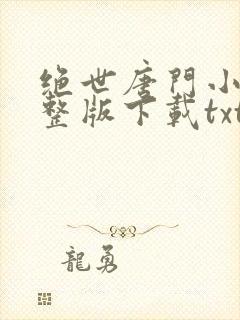 绝世唐門小
整版下載txt
龍勇